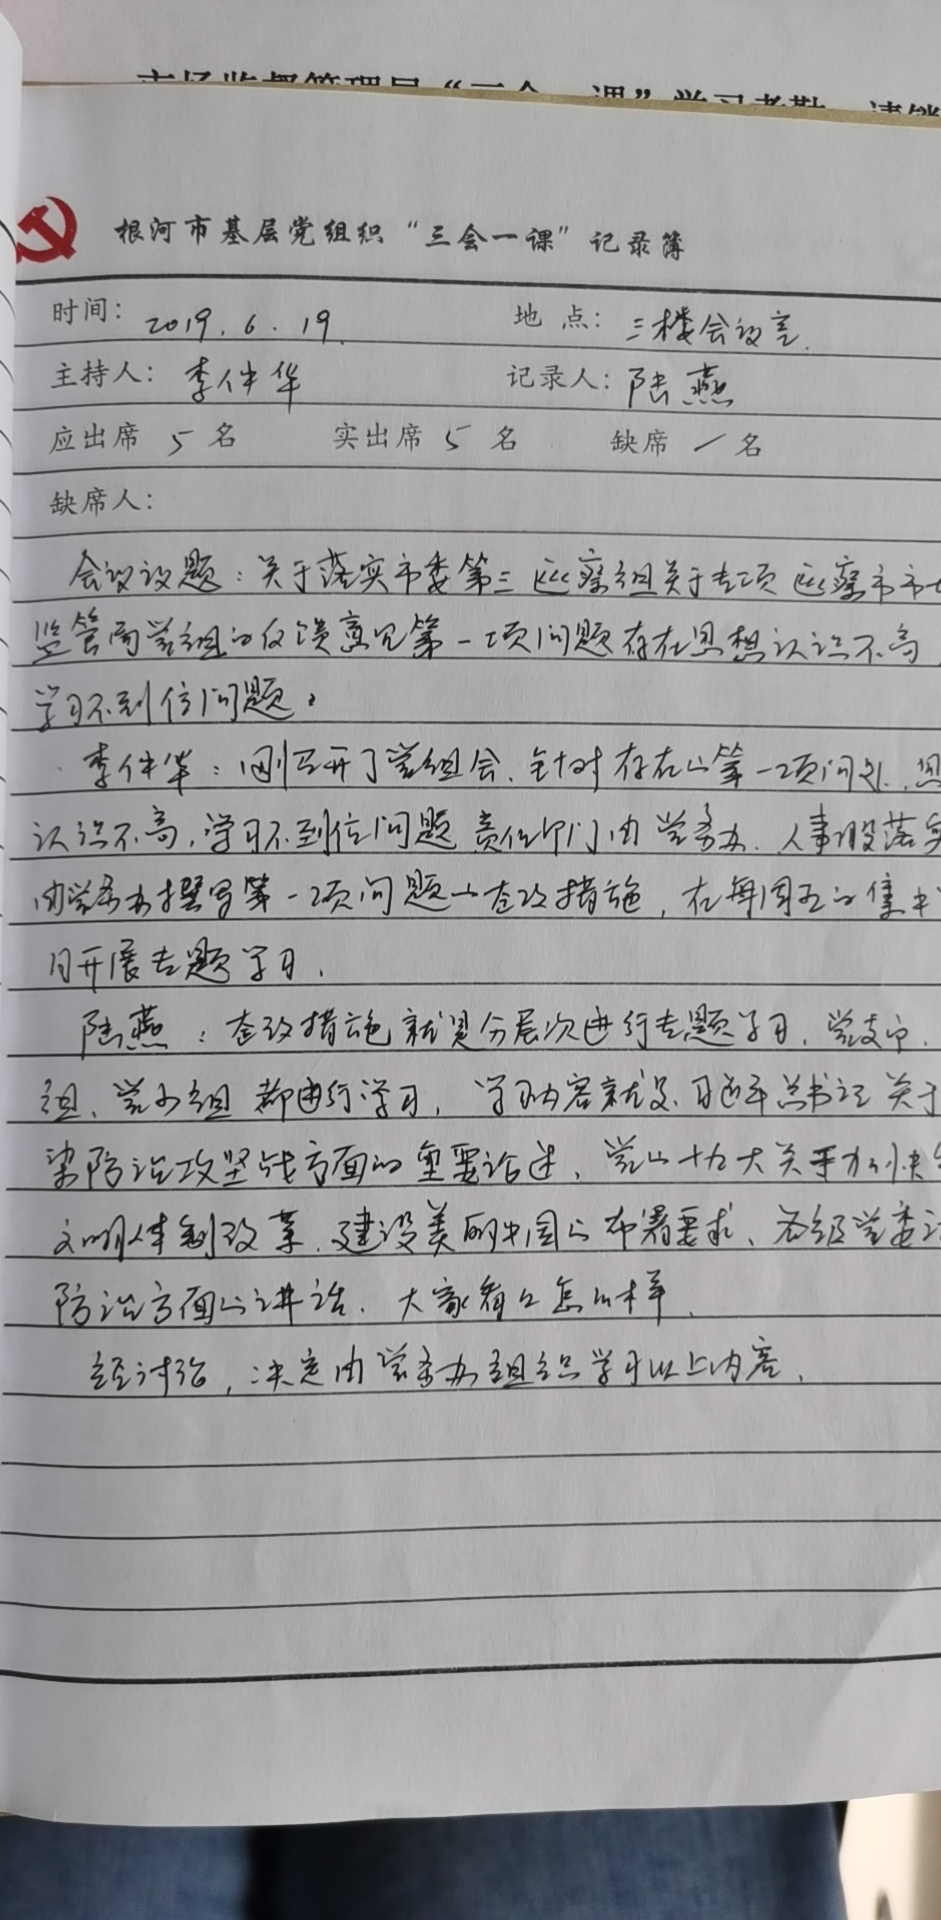 市场监督管理局“三会一课”学习考勤
根河市基层党组织“三会一课”记录簿
时间: 2019.6.19. 地点: 三楼会议室.
主持人: 李仕华 记录人: 陆燕
应出席 5 名 实出席 5 名 缺席 / 名
缺席人:
会议议题:关于落实市委第三巡察组关于专项巡察市市
监管局党组的反馈意见第一项问题存在思想认识不高,
学习不到位问题。
李仕华:刚召开了党组会.针对存在的第一项问题.思
认识不高,学习不到位问题 责任部门由党委办.人事股落实
由党委办撰写第一项问题的整改措施,在每周五的集中
日开展专题学习.
陆燕:整改措施就是分层次进行专题学习.党支部.
组、党小组都进行学习,学习内容就是.习近平总书记关于
染防治攻坚战方面的重要论述、党的十九大关于加快
文明体制改革.建设美丽中国的布署要求、各级党委
防治方面的讲话.大家看看怎么样.
经讨论,决定由党委办组织学习以上内容.